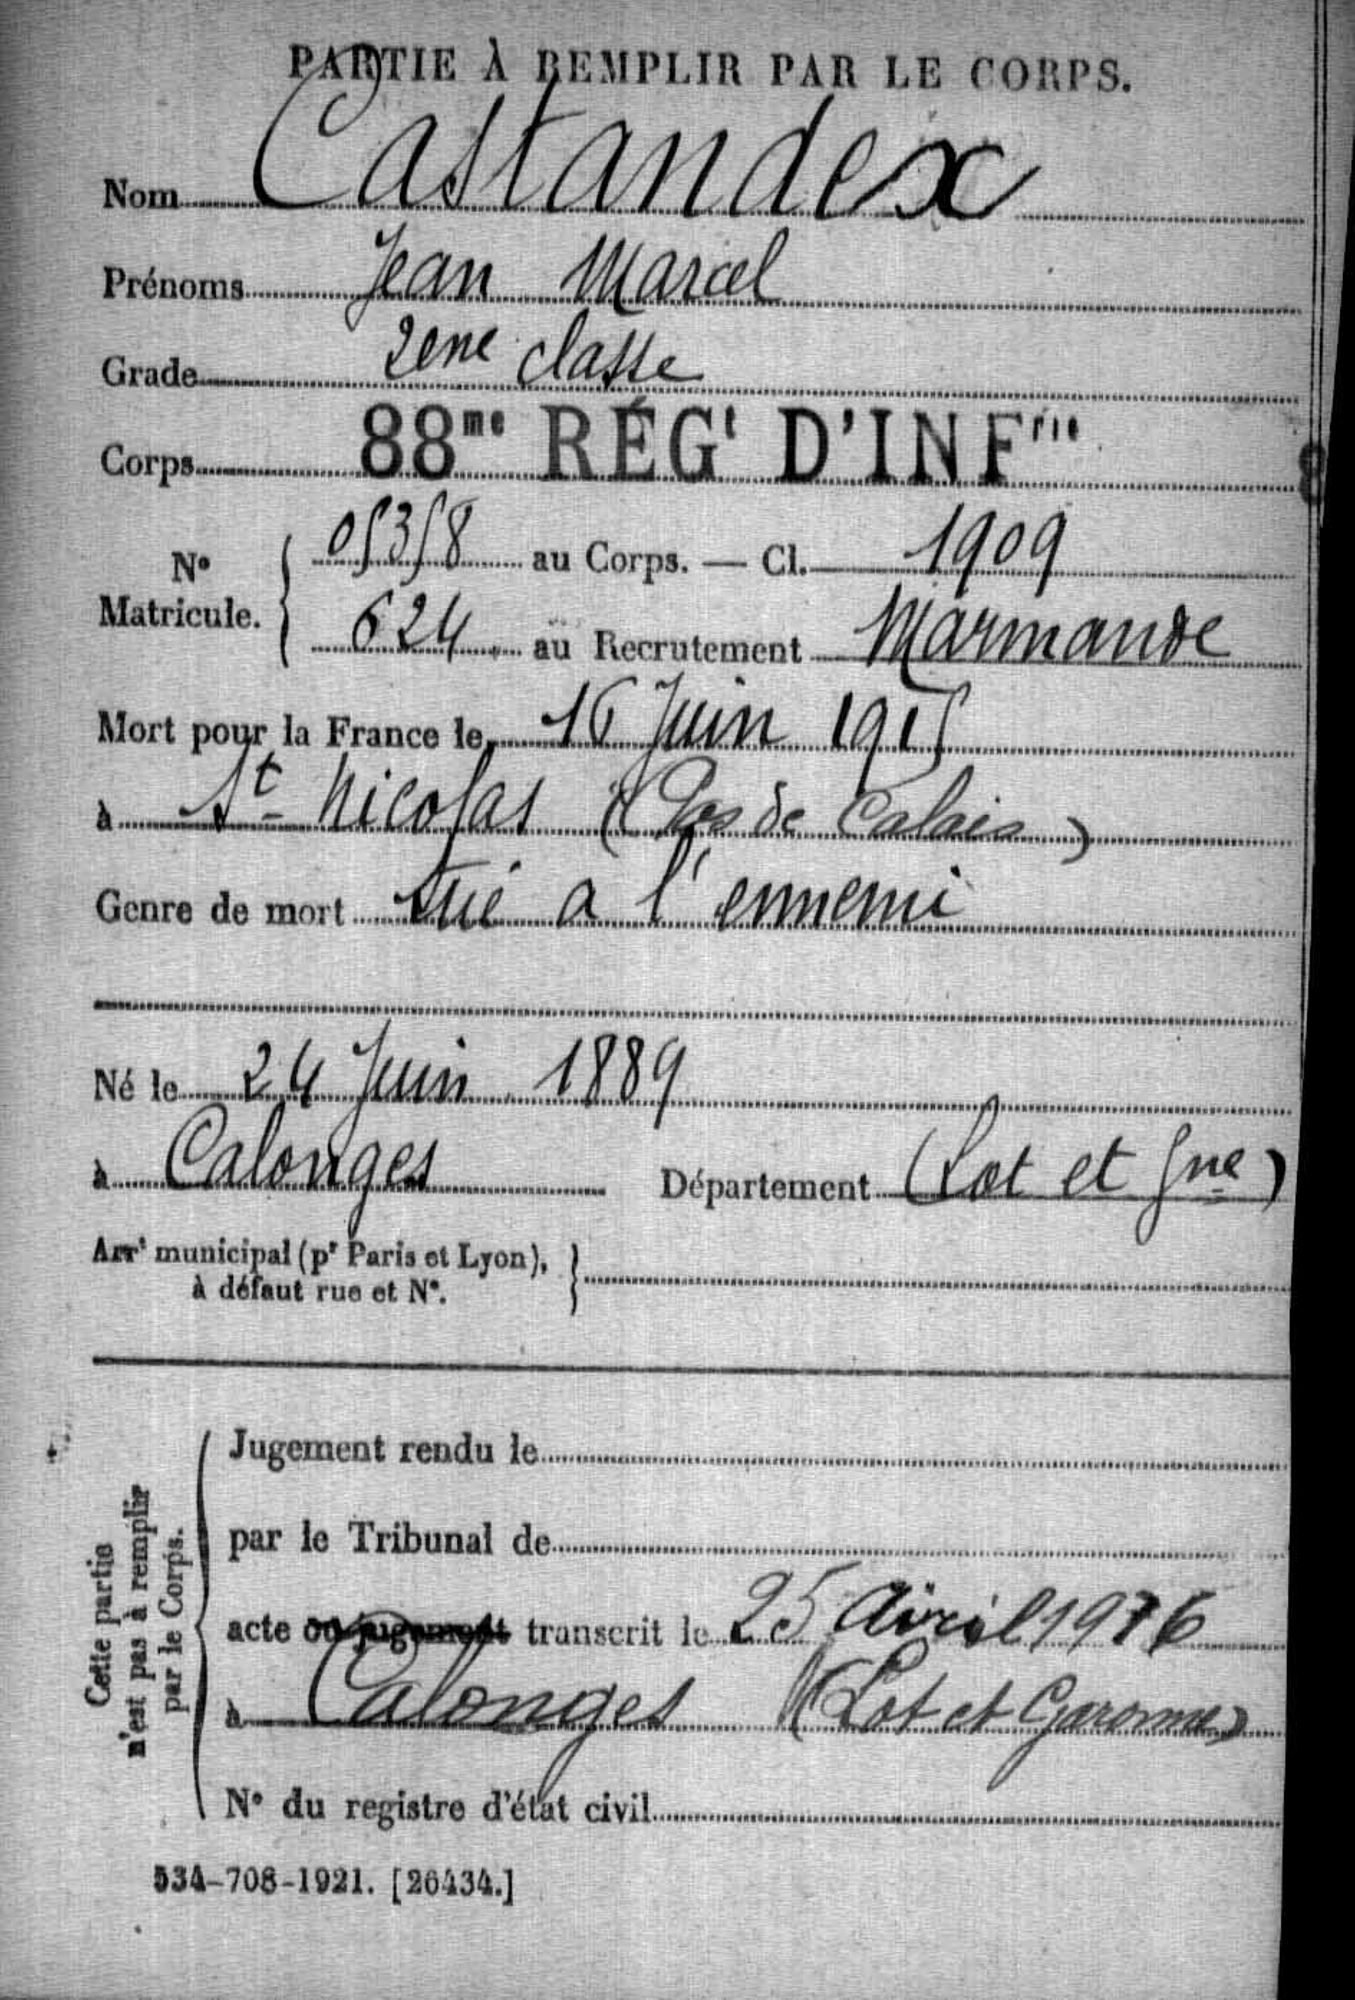 PARTIE À REMPLIR PAR LE CORPS.
Nom Castandex
Prénoms Jean Marcel
Grade 2ene classe
Corps 88me RÉGt D'INFrie
No Matricule. { 05358 au Corps. — Cl. 1909
624 au Recrutement Marmande
Mort pour la France le 16 Juin 1915
à St Nicolas (Pas de Calais)
Genre de mort tué a l'ennemi
Né le 24 Juin 1889
à Calonges Département (Lot et Gne)
Arrt municipal (pr Paris et Lyon), à défaut rue et No. }
Cette partie n'est pas à remplir par le Corps.
Jugement rendu le
par le Tribunal de
acte ou jugement transcrit le 25 Avril 1916
à Calonges (Lot et Garonne)
No du registre d'état civil
534-708-1921. [26434.]